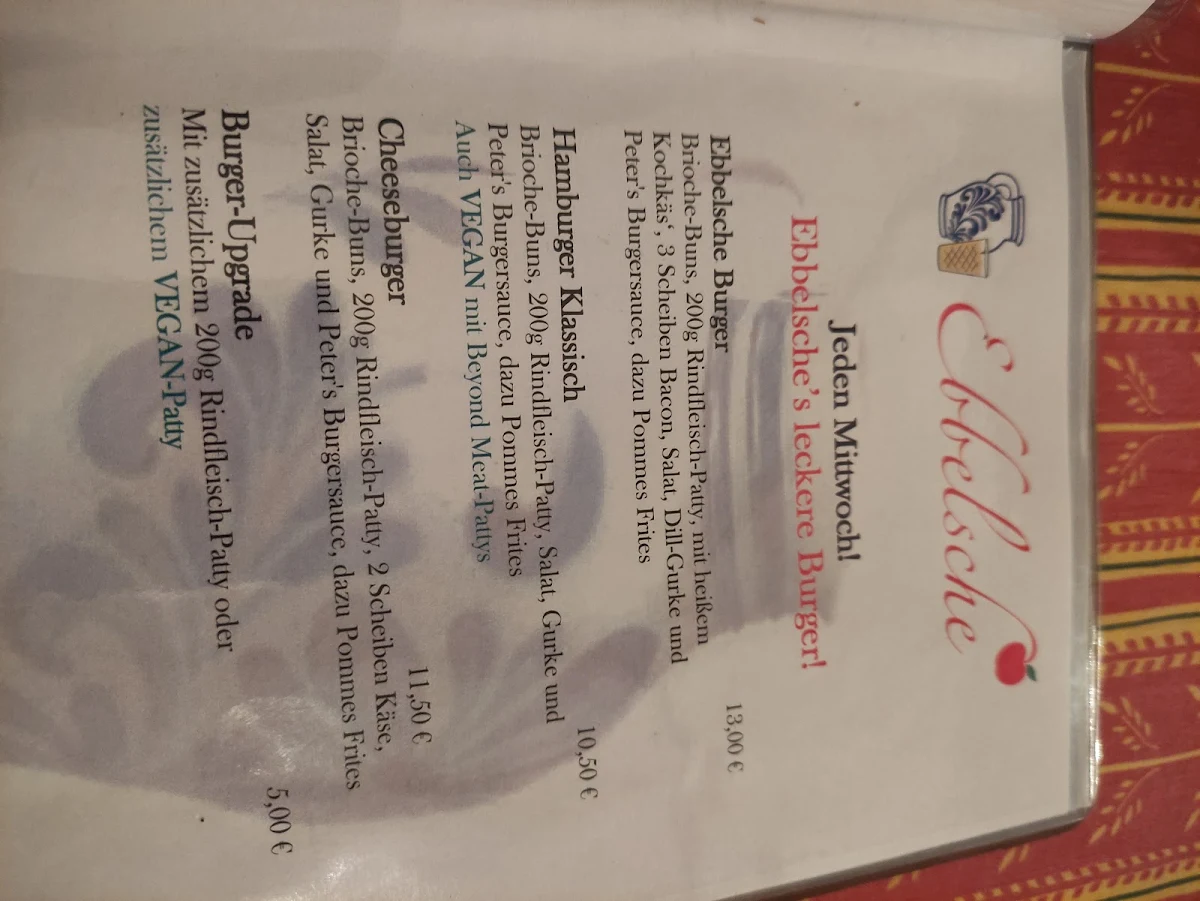 Ebbelsche
Jeden Mittwoch!
Ebbelsche's leckere Burger!
Ebbelsche Burger 13,00 €
Brioche-Buns, 200g Rindfleisch-Patty, mit heißem
Kochkäs‘, 3 Scheiben Bacon, Salat, Dill-Gurke und
Peter's Burgersauce, dazu Pommes Frites
Hamburger Klassisch 10,50 €
Brioche-Buns, 200g Rindfleisch-Patty, Salat, Gurke und
Peter's Burgersauce, dazu Pommes Frites
Auch VEGAN mit Beyond Meat-Pattys
Cheeseburger 11,50 €
Brioche-Buns, 200g Rindfleisch-Patty, 2 Scheiben Käse,
Salat, Gurke und Peter's Burgersauce, dazu Pommes Frites
Burger-Upgrade 5,00 €
Mit zusätzlichem 200g Rindfleisch-Patty oder
zusätzlichem VEGAN-Patty